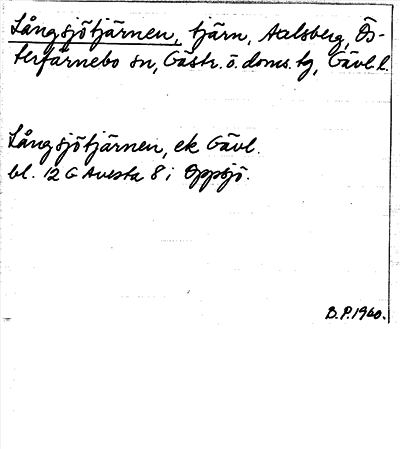 Långsjötjärnen, tjärn, Aalsberg, Ös-
terfärnebo sn, Gästr. ö. doms. tg, Gävl. l.
Långsjötjärnen, ek Gävl.
bl. 12 G Avesta 8 i Oppsjö.
B. P. 1960.